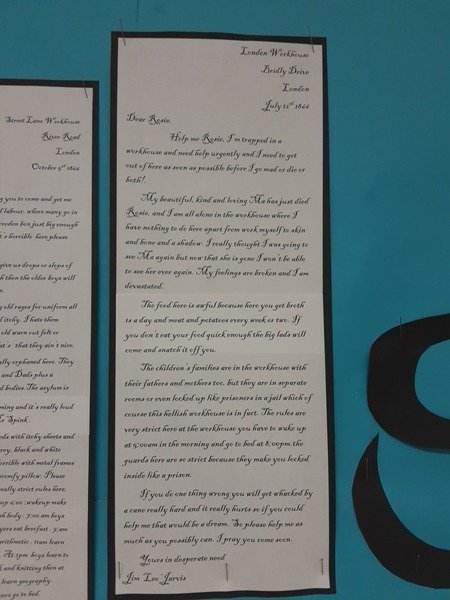 Street Lane Workhouse
River Road
London
October 5th 1866
g you to come and get me
d labour, where many go in
wooden box, just big enough
t's horrible here please
give us drops or slops of
h then the older boys will
g old rages for uniform all
d itchy. I hate them
old warn out felt or
at's that they ain't nice.
ally orphaned here. They
and Dads plus a
d bodies. The asylum is
ming and it's really loud
G Spink.
ds with itchy sheets and
rey, black and white
orrible with metal frames
comfy pillow. Please
eally strict rules here,
up 6:00: wakeup make
7:00 am boys
eat brecfast
11am learn
At 2pm boys learn to
and knitting then at
learn geography.
go to bed.
London Workhouse
Bridly Drive
London
July 12th 1866
Dear Rosie,
Help me Rosie, I'm trapped in a
workhouse and need help urgently and I need to get
out of here as soon as possible before I go mad or die or
both!.
My beautiful, kind and loving Ma has just died
Rosie, and I am all alone in the workhouse where I
have nothing to do here apart from work myself to skin
and bone and a shadow. I really thought I was going to
see Ma again but now that she is gone I won't be able
to see her ever again. My feelings are broken and I am
devastated.
The food here is awful because here you get broth
is a day and meat and potatoes every week or two. If
you don't eat your food quick enough the big lads will
come and snatch it off you.
The children's families are in the workhouse with
their fathers and mothers too, but they are in separate
rooms or even locked up like prisoners in a jail which of
course this hellish workhouse is in fact. The rules are
very strict here at the workhouse you have to wake up
at 5:00am in the morning and go to bed at 8:00pm.the
guards here are so strict because they make you locked
inside like a prison.
If you do one thing wrong you will get whacked by
a cane really hard and it really hurts so if you could
help me that would be a dream. So please help me as
much as you possibly can. I pray you come soon.
Yours in desperate need
Jim 'Leo' Jarvis